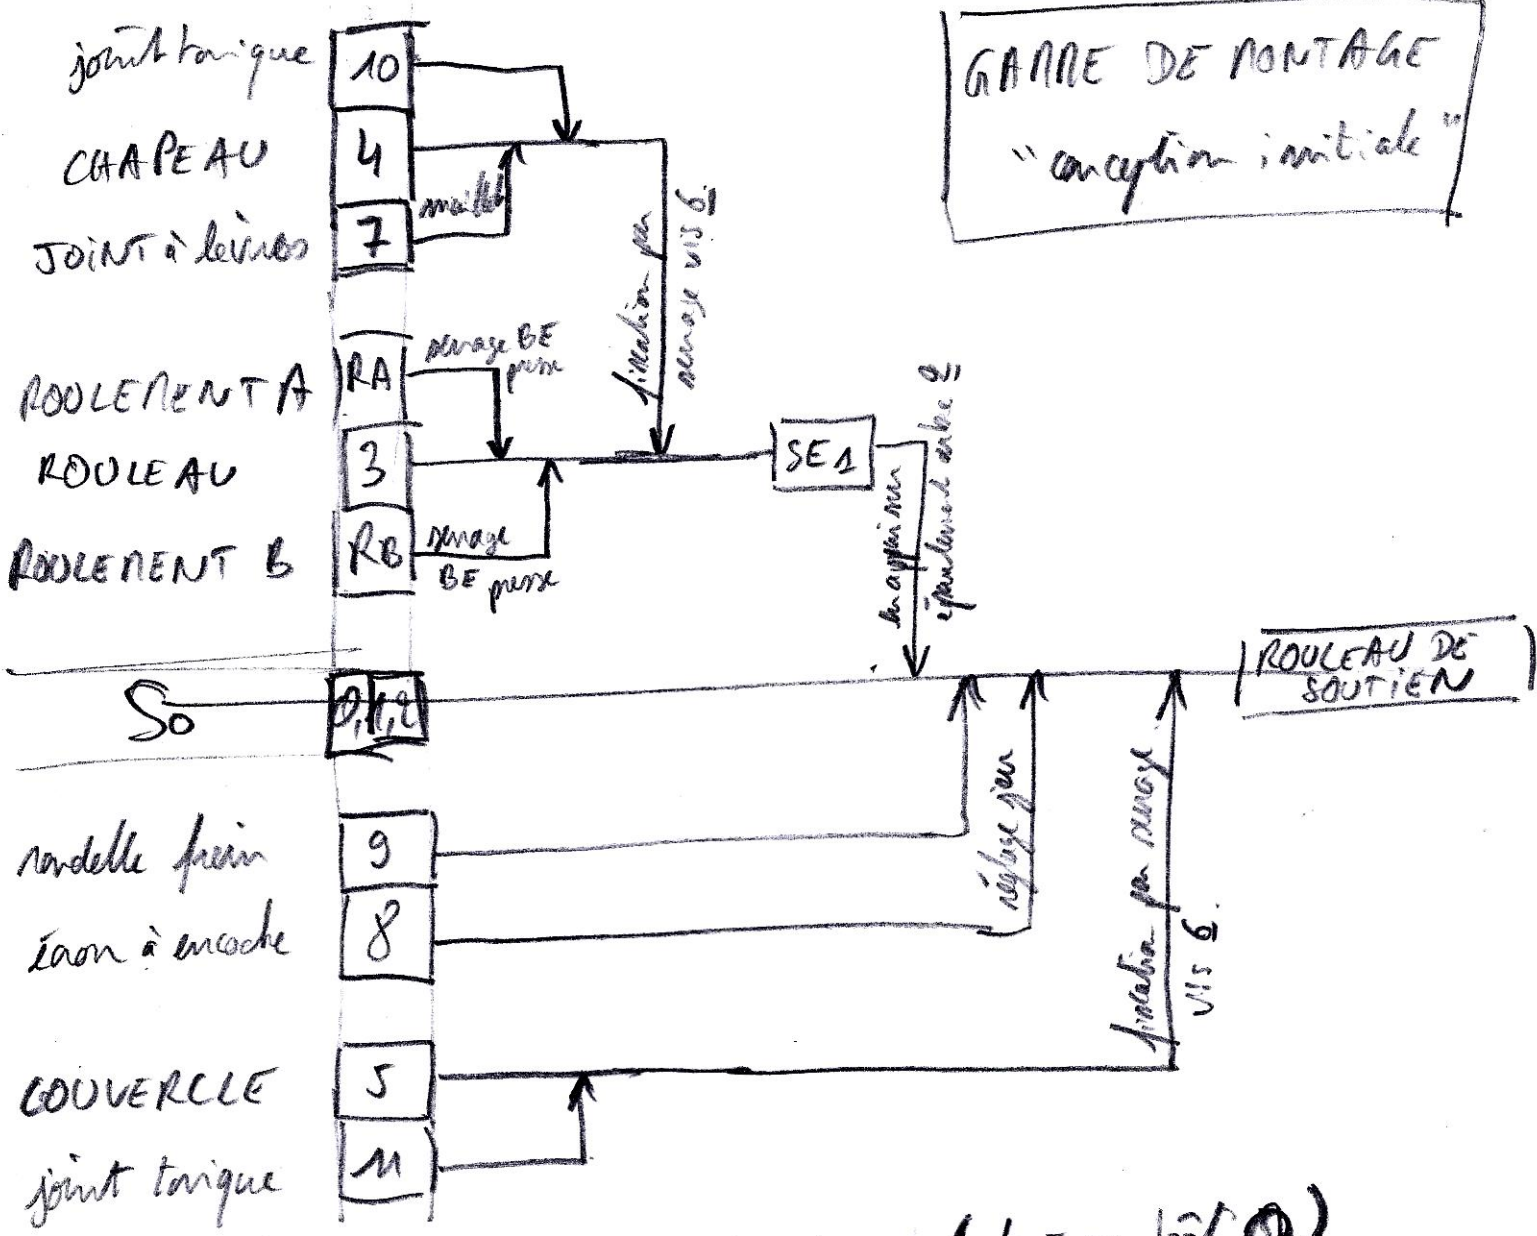 GAMME DE MONTAGE
"conception initiale"
joint torique 10
CHAPEAU 4
maillet
JOINT à lèvres 7
fixation par
serrage vis 6
ROULEMENT A RA
serrage BE
presse
ROULEAU 3
SE1
ROULEMENT B RB
serrage
BE presse
en appui sur
épaulement arbre 2
S0 0,1,2
ROULEAU DE
SOUTIEN
rondelle frein 9
réglage jeu
écrou à encoche 8
fixation par serrage
vis 6.
COUVERCLE 5
joint torique 11